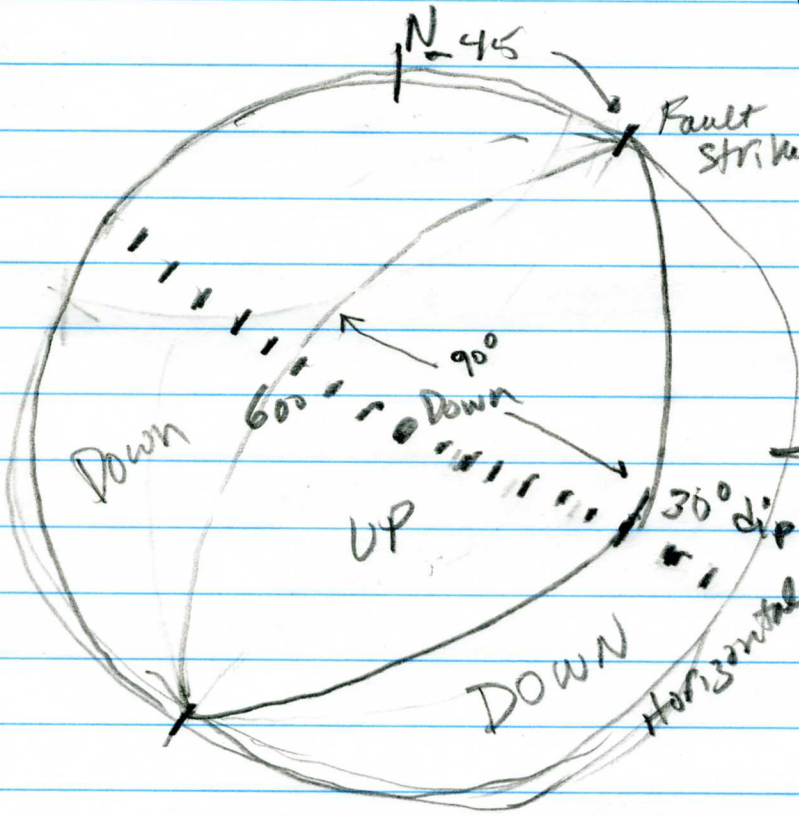 N 45
Fault
Strike
90°
Down
60°
Down
UP
30° dip
DOWN
Horizontal